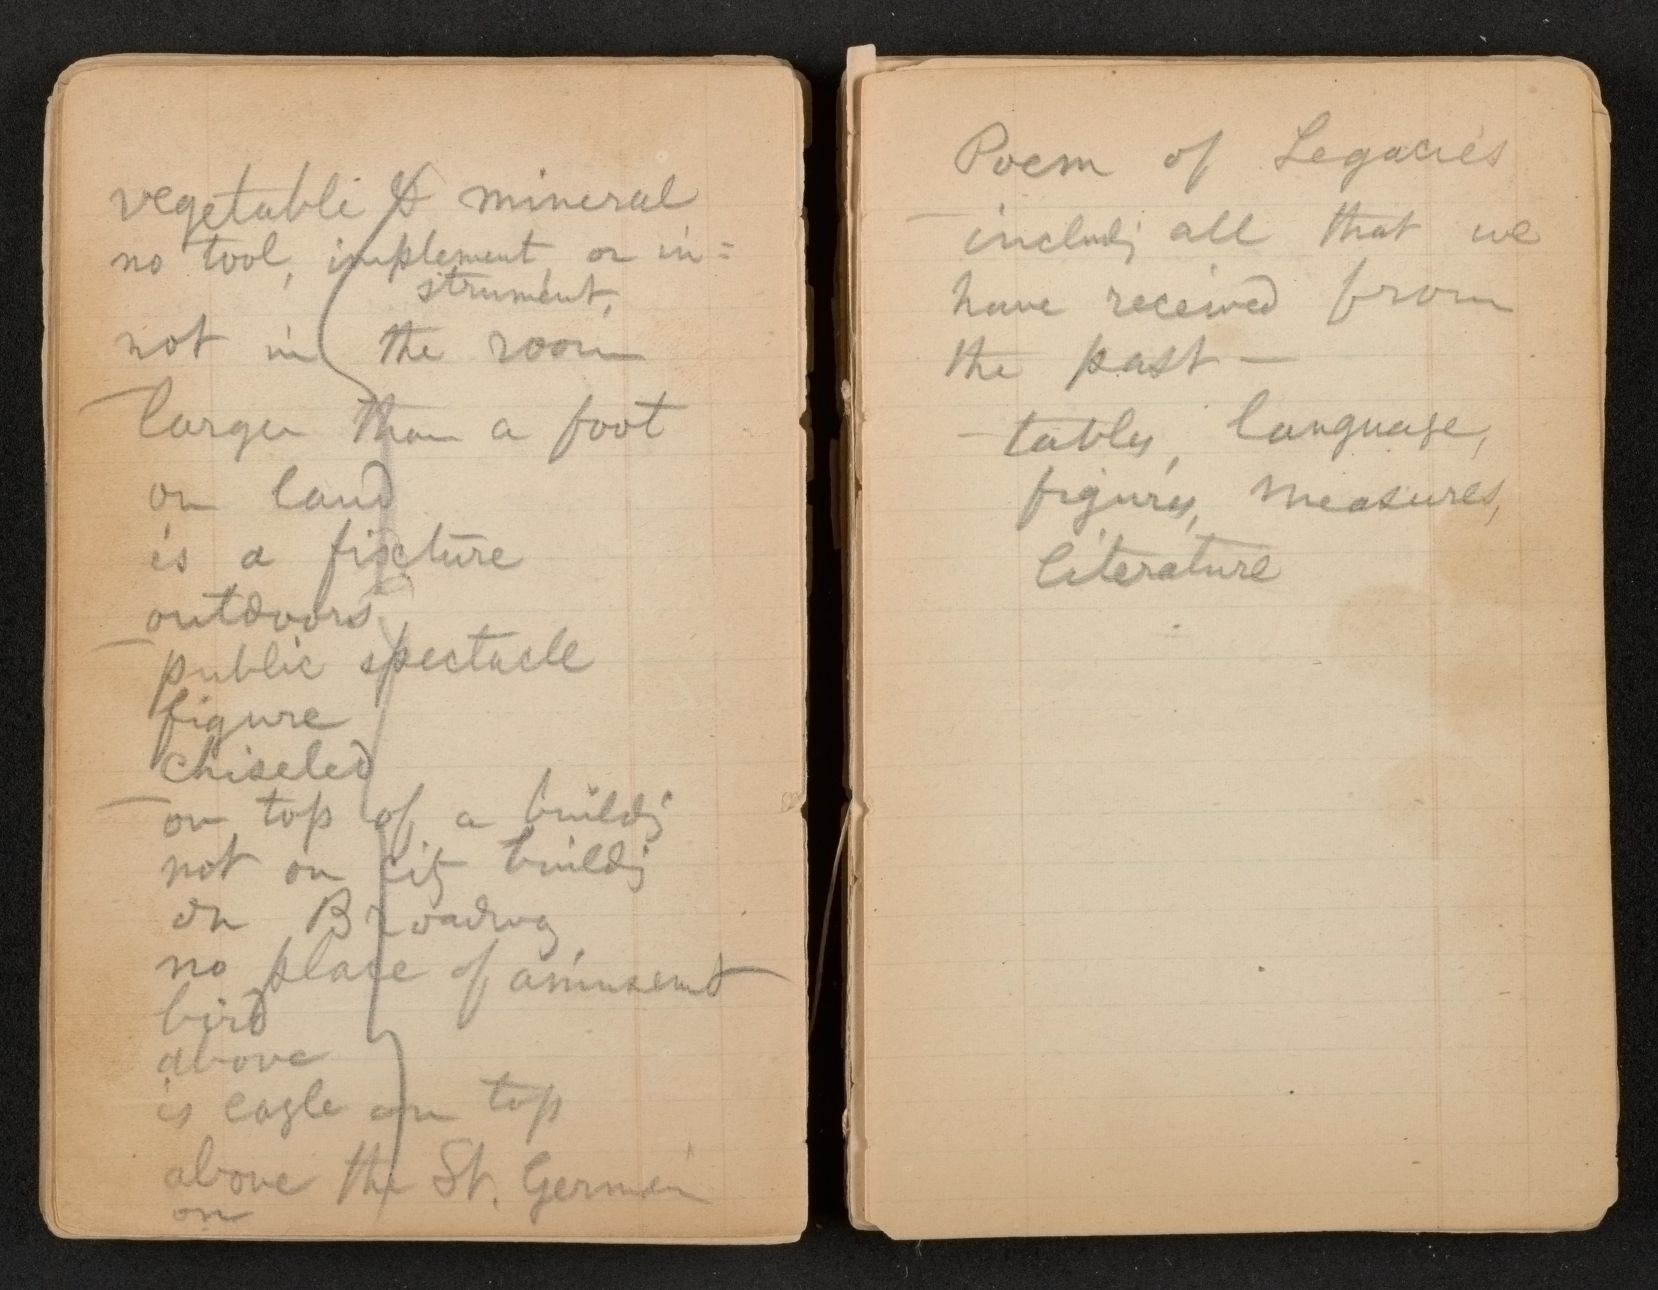 vegetable & mineral
no tool, implement, or in=
strument,
not in the room
larger than a foot
on land
is a fixture
outdoors
public spectacle
figure
chiseled
on top of a buildg
not on city buildg
on Broadway
no place of amusemt
bird
above
is eagle on top
above the St. Germain
on
Poem of Legacies
includg all that we
have received from
the past —
— tables, language,
figures, measures,
literature